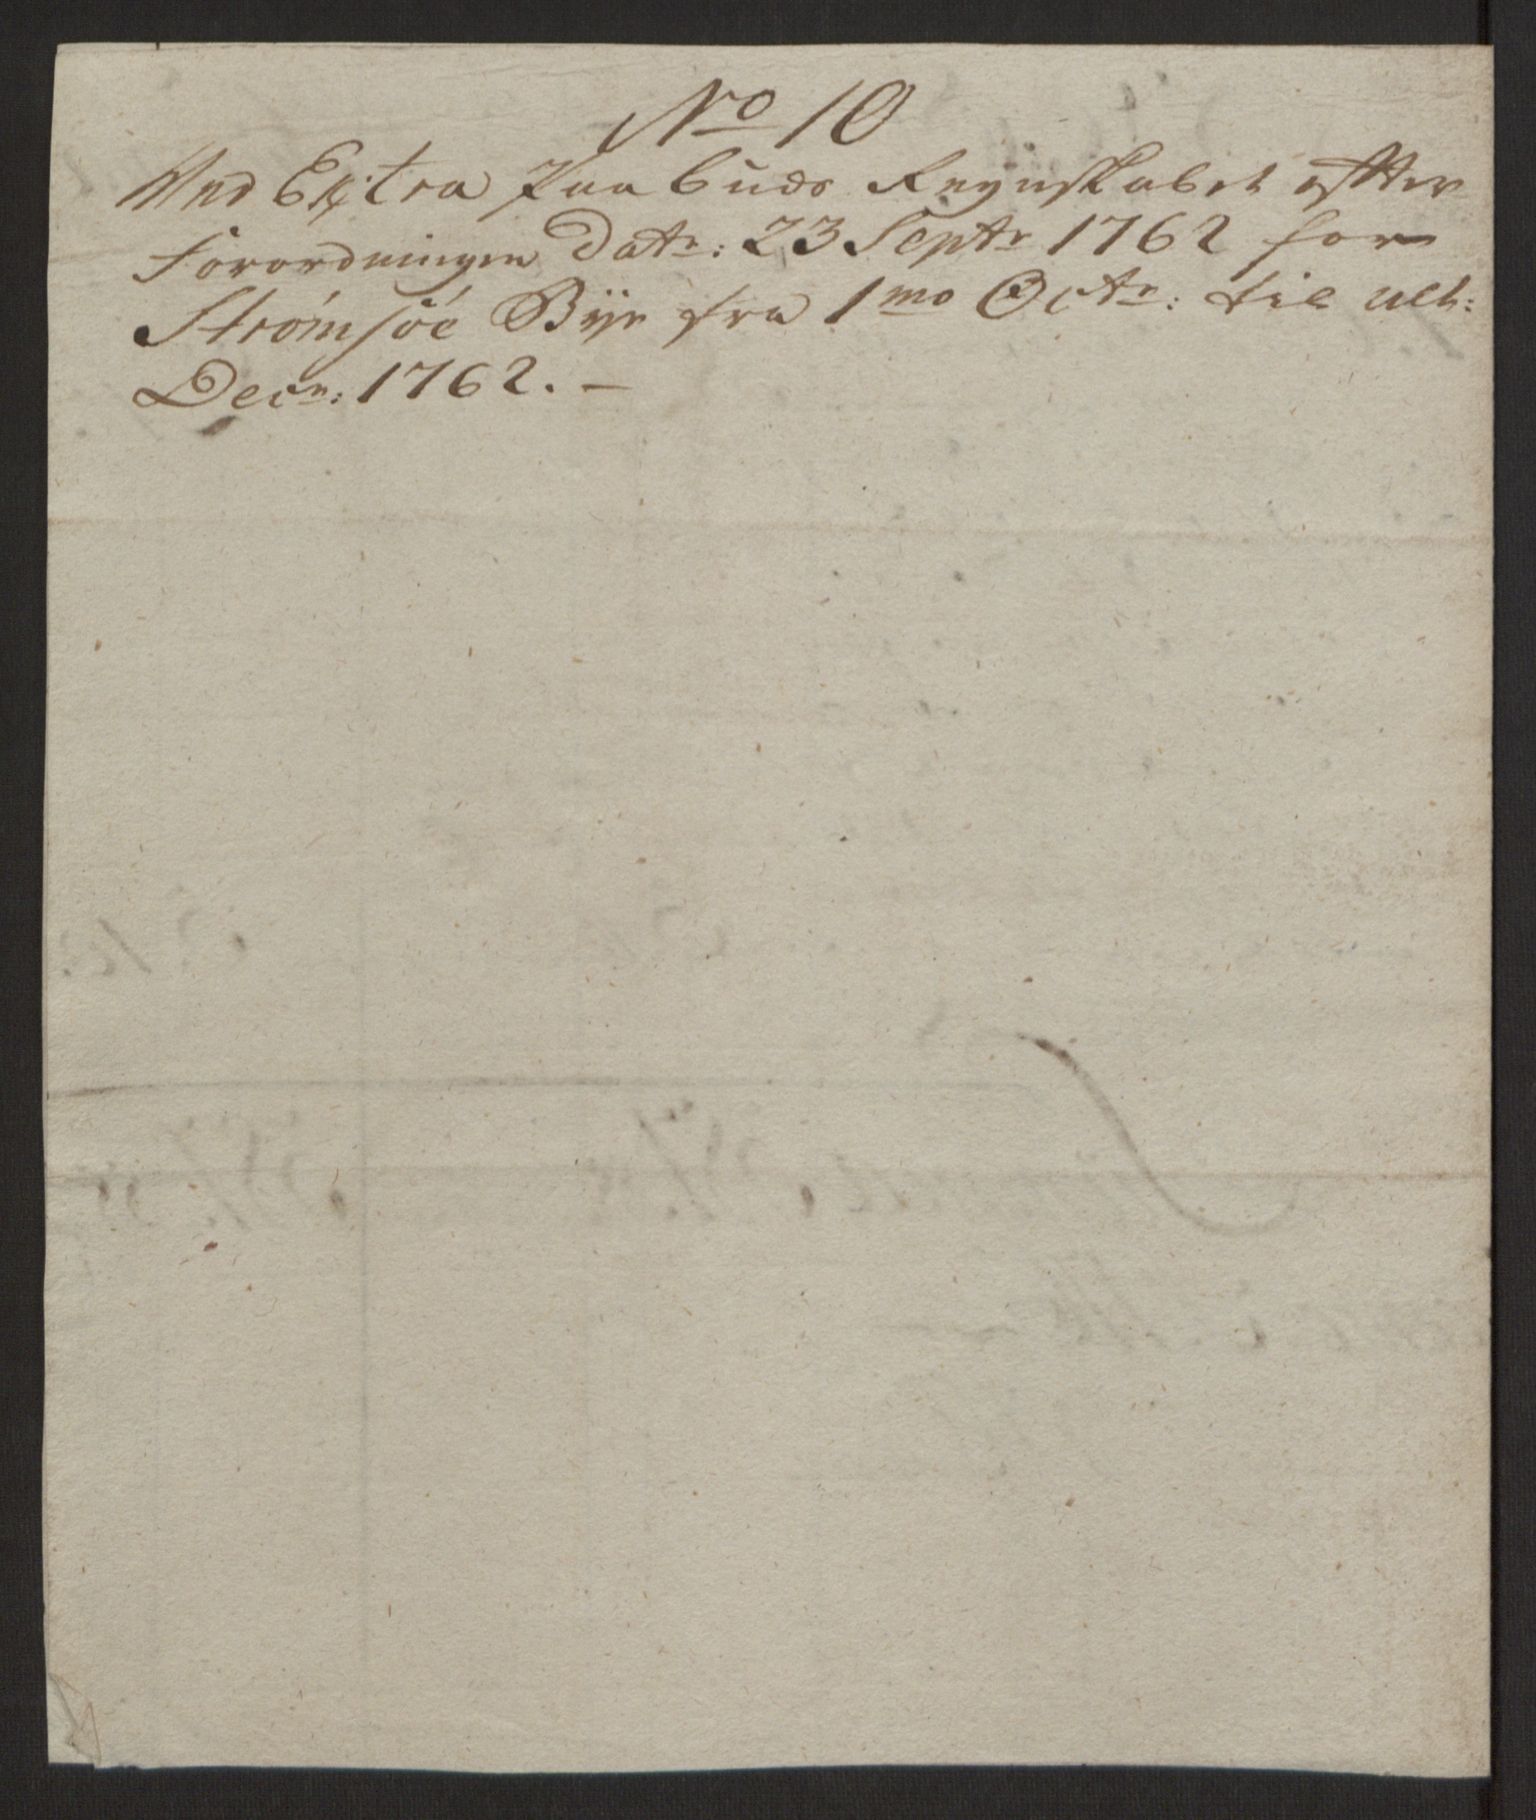 No 10
Ved Extra Paabuds Regnskabet efter
Forordningen Datr: 23 Septr 1762 for
Strömsöe Bÿe fra 1mo Octr: til ult:
Decr: 1762. —